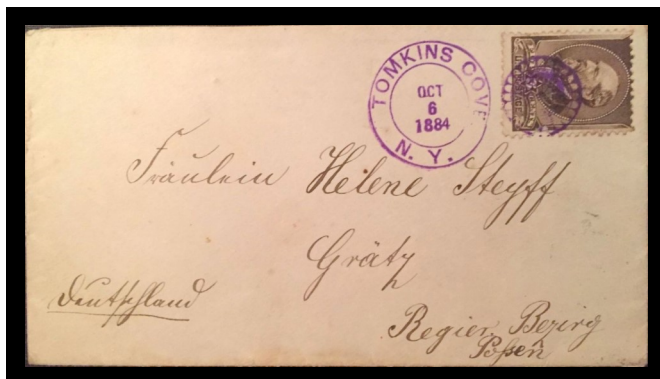 TOMKINS COVE
OCT
6
1884
N. Y.
Fräulein Helene Steyff
Grätz
Deutschland
Regier. Bezirg
Poßen